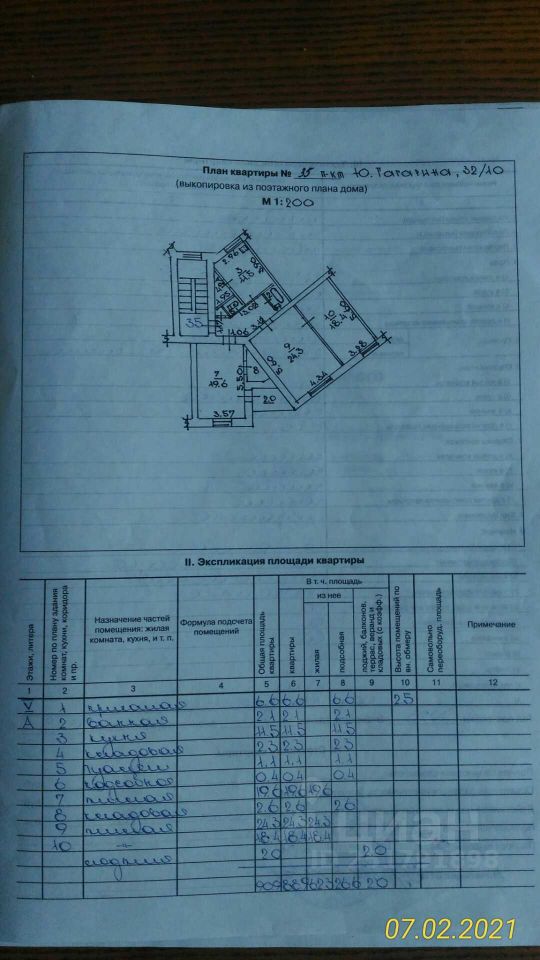 План квартиры № 35 п-кт Ю. Гагарина, 32/10
(выкопировка из поэтажного плана дома)
М 1: 200
2.96
3
11.5
35
1.06
3.12
10
18.4
9
24.3
7
19.6
5.50
8
2.0
3.28
4.34
3.57
II. Экспликация площади квартиры
Этажи, литера
Номер по плану здания комнат, кухни, коридора и пр.
Назначение частей помещения: жилая комната, кухня, и т. п.
Формула подсчета помещений
Общая площадь квартиры
В т. ч. площадь
квартиры
из нее
жилая
подсобная
лоджий, балконов, террас, веранд и кладовых (с коэфф.)
Высота помещений по вн. обмеру
Самовольно переоборуд. площадь
Примечание
1 2 3 4 5 6 7 8 9 10 11 12
V 1 прихожая 6.6 6.6 6.6 2.5
А 2 ванная 2.1 2.1 2.1
3 кухня 11.5 11.5 11.5
4 кладовая 2.3 2.3 2.3
5 туалет 1.1 1.1 1.1
6 подсобная 0.4 0.4 0.4
7 жилая 19.6 19.6 19.6
8 кладовая 2.6 2.6 2.6
9 жилая 24.3 24.3 24.3
10 -"- 18.4 18.4 18.4
лоджия 2.0 2.0
90.9 88.9 62.3 26.6 2.0
циан
07.02.2021